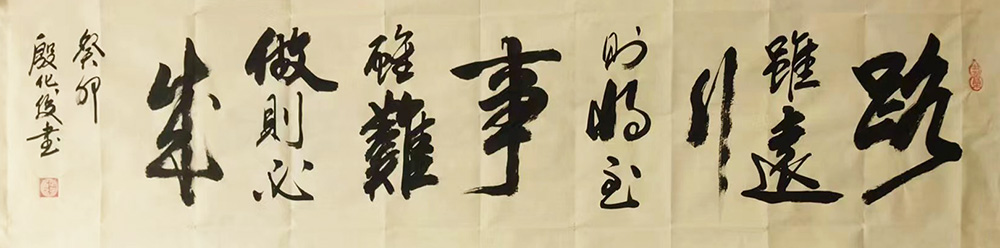 路
雖遠
行
則將至
事
雖難
做則必
成
癸卯
殷化俊書